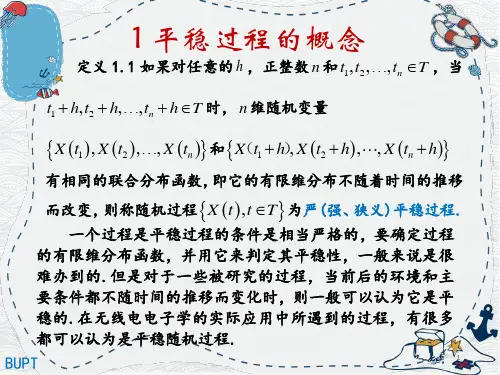 1平稳过程的概念
定义 1.1 如果对任意的h，正整数n和t₁,t₂,…,tₙ∈T，当
t₁+h,t₂+h,…,tₙ+h∈T时，n维随机变量
{X(t₁),X(t₂),…,X(tₙ)}和{X(t₁+h),X(t₂+h),…,X(tₙ+h)}
有相同的联合分布函数，即它的有限维分布不随着时间的推移
而改变，则称随机过程{X(t),t∈T}为严(强、狭义)平稳过程.
一个过程是平稳过程的条件是相当严格的，要确定过程
的有限维分布函数，并用它来判定其平稳性，一般来说是很
难办到的.但是对于一些被研究的过程，当前后的环境和主
要条件都不随时间的推移而变化时，则一般可以认为它是平
稳的.在无线电电子学的实际应用中所遇到的过程，有很多
都可以认为是平稳随机过程.
BUPT